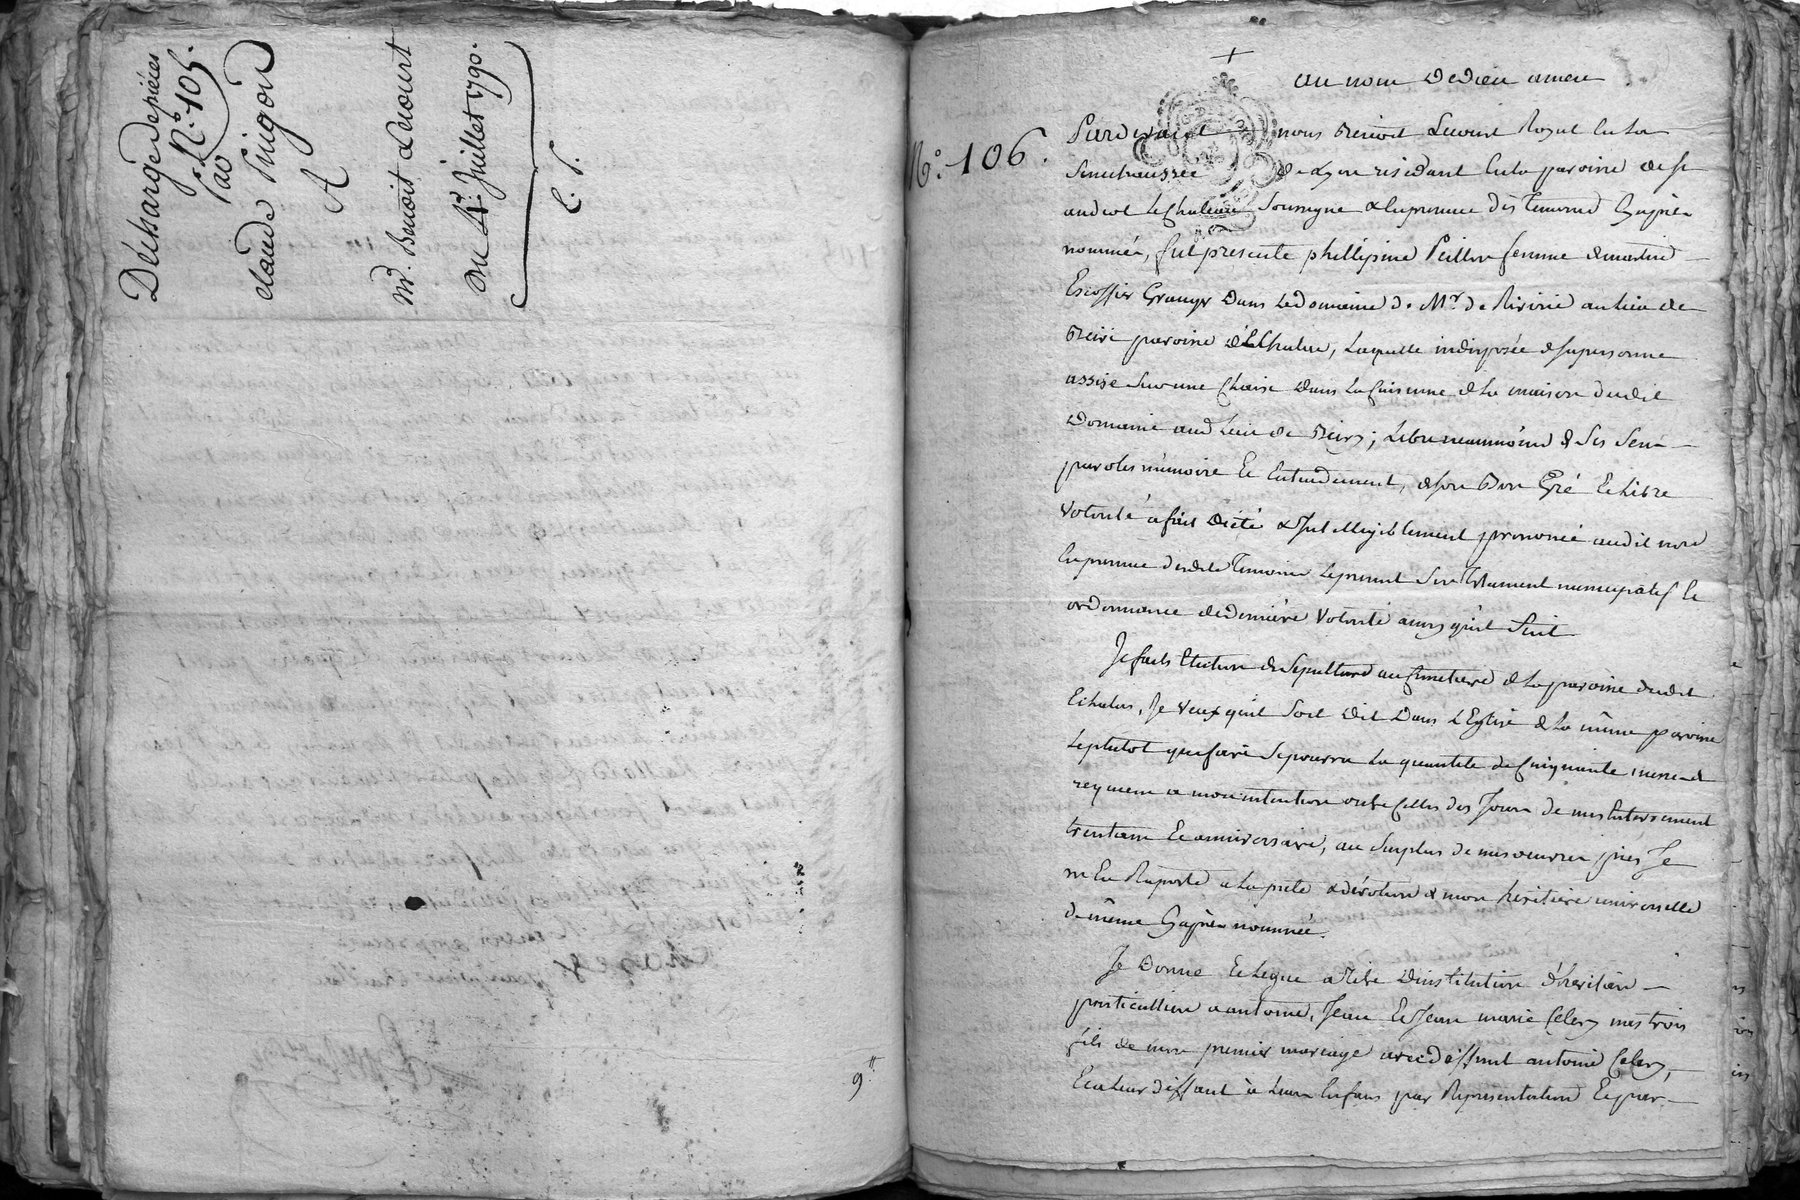 Décharge de pièces
N.º 105.
par
claude Puigon
A
Mr. Benoit Lecourt
Du 4r. Juillet 1790.
C. S.
9"
N.º 106.
+
au nom de dieu amen
Pardevant nous Benoit Lecourt Royal en la
Senechaussée de Lyon residant en la paroisse de st
andeol le Chateau soussigné & en presence des temoins cy après
nommés, fut presente phillipine Peillon femme de martin
Escoffier Granger dans le domaine de Mr. de Riverie au lieu de
paroisse d'Echalas, laquelle indisposée de sa personne
assise sur une chaise dans la cuisinne de la maison dudit
domaine aud lieu de ; libre neanmoins de ses sens
paroles mémoire et entendement, de son bon Gré et libre
volonté a fait dicté & intelligiblement prononcé audit no.re
en presence desdits temoins le present son testament nuncupatif et
ordonnance de derniére volonté ainsy qu'il suit
Je fais Election de sepulture au cimetiere de la paroisse dudit
Echalas, Je veux qu'il soit dit dans L'Eglise de la même paroisse
le plutot que faire se pourra la quantité de cinquante messes de
requiem a mon intention outre celles des Jours de mes Enterrement
trentain et anniversaire, au surplus de mes oeuvres pies Je
m'en Raporte a la pieté & dévotion de mon heritiere universelle
de même cy après nommée.
Je donne et legue a titre d'institution d'heritiers
particulliers a antoine, Jean et Jean marie Celery mes trois
fils de mon premier mariage avec deffunt antoine Celery,
et a leur deffaut à leurs Enfans par Representation et par